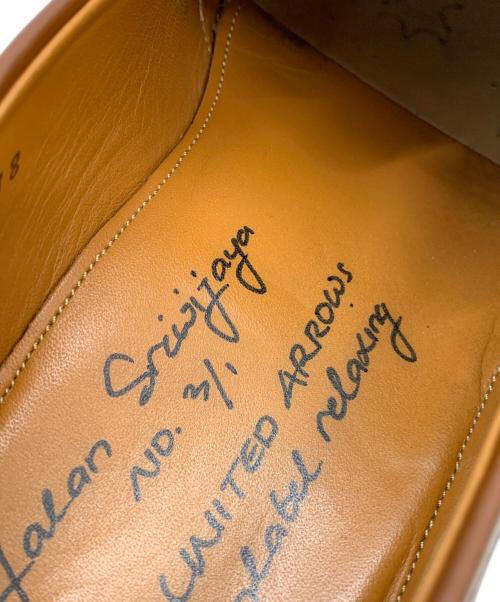 Jalan Sriwijaya
NO. 3/1
UNITED ARROWS
label relaxing
8